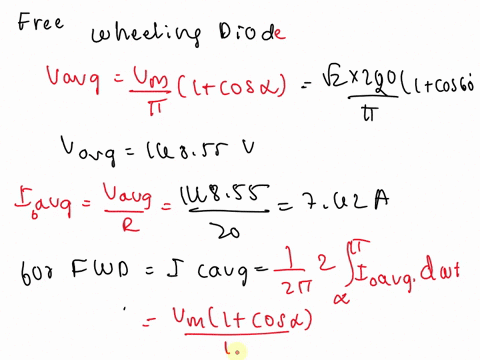 Free Wheeling Diode
Vavg = Vm/π (1+cosα) = √2×220/π (1+cos60
Vavg = 148.55 V
Ioavg = Vavg/R = 148.55/20 = 7.42A
for FWD = I cavg = 1/2π 2 ∫απ Ioavg.dωt
= Vm(1+cosα)